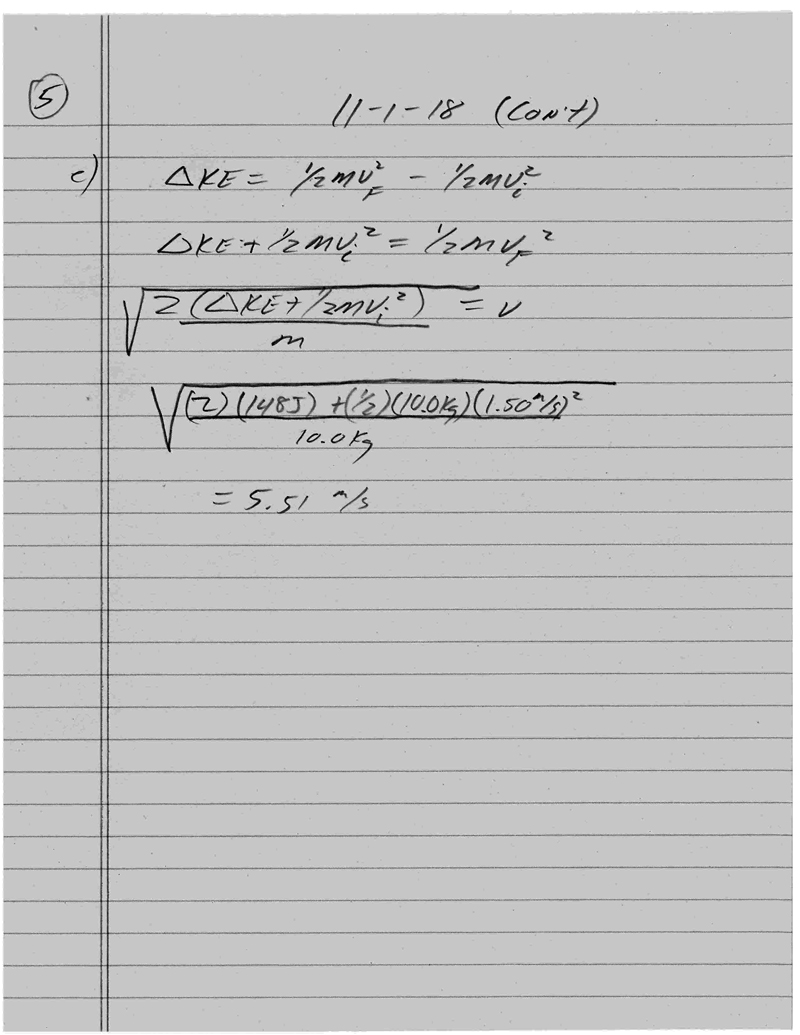 5
11-1-18 (CON't)
c) ΔKE = 1/2 mv_F² - 1/2 mv_i²
ΔKE + 1/2 mv_i² = 1/2 mv_F²
√(2(ΔKE + 1/2 mv_i²)/m) = v
√((2)(148J) + (1/2)(10.0Kg)(1.50 m/s)²/10.0Kg)
= 5.51 m/s